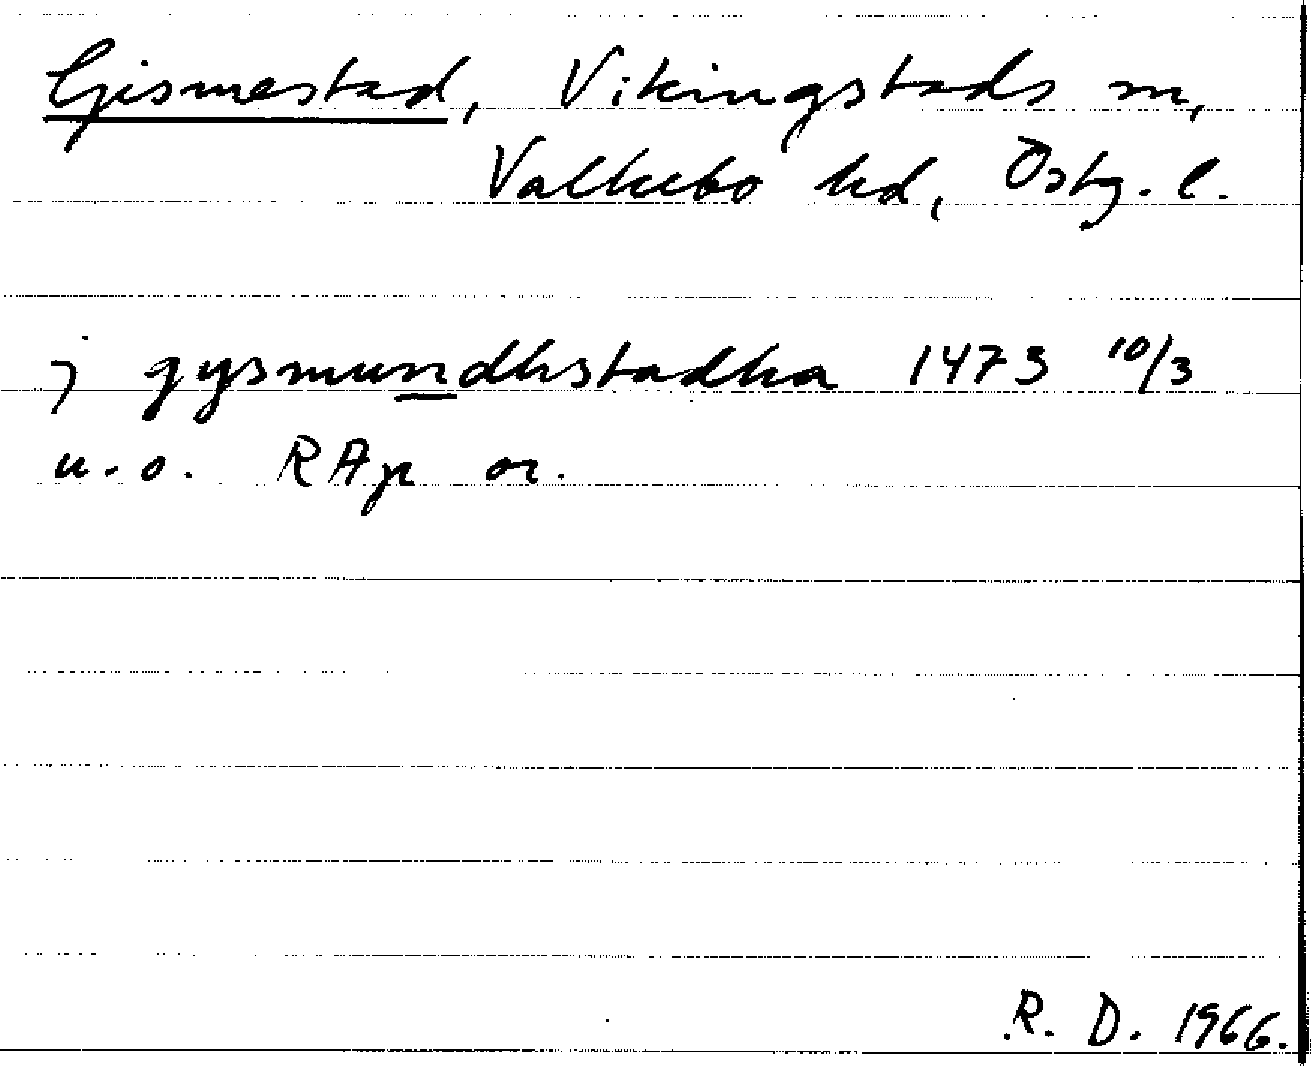 Gismestad, Vikingstads sn,
Valkebo hd, Östg. l.
j gysmundhstadha 1473 10/3
u.o. RAp or.
R. D. 1966.